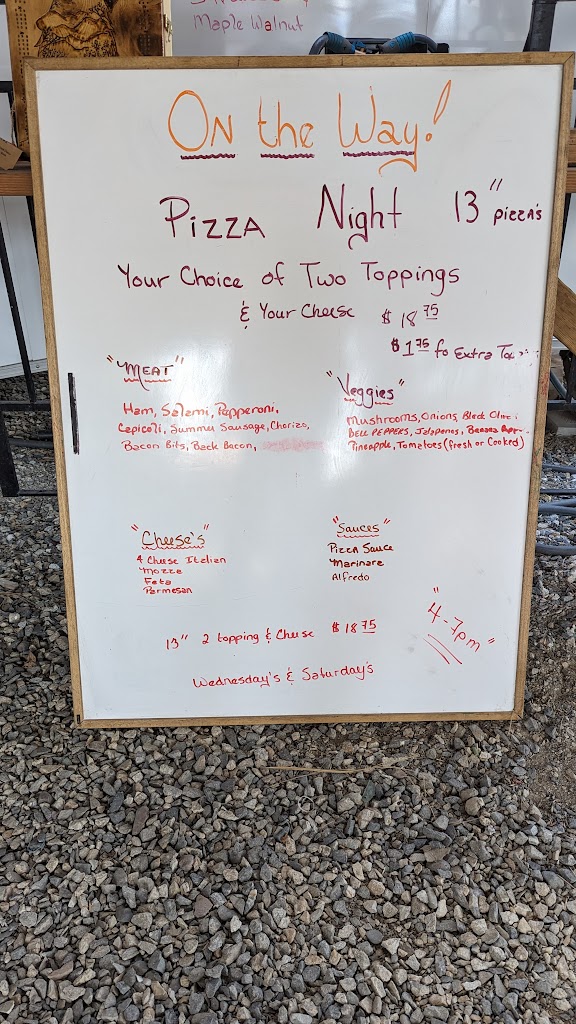 Maple Walnut
On the Way!
Pizza Night 13" pizza's
Your Choice of Two Toppings
& Your Cheese $18 75
$1 75 fo Extra
"Meat"
Ham, Salami, Pepperoni,
Capicoli, Summer Sausage, Chorizo,
Bacon Bits, Back Bacon,
"Veggies"
Mushrooms, Onions, Black
Bell Peppers, Jalapenos, Banana
Pineapple, Tomatoes (fresh or Cooked)
"Cheese's"
4 Cheese Italian
Mozza
Feta
Parmesan
"Sauces"
Pizza Sauce
Marinara
Alfredo
"4-7pm"
13" 2 topping & Cheese $18 75
Wednesday's & Saturday's